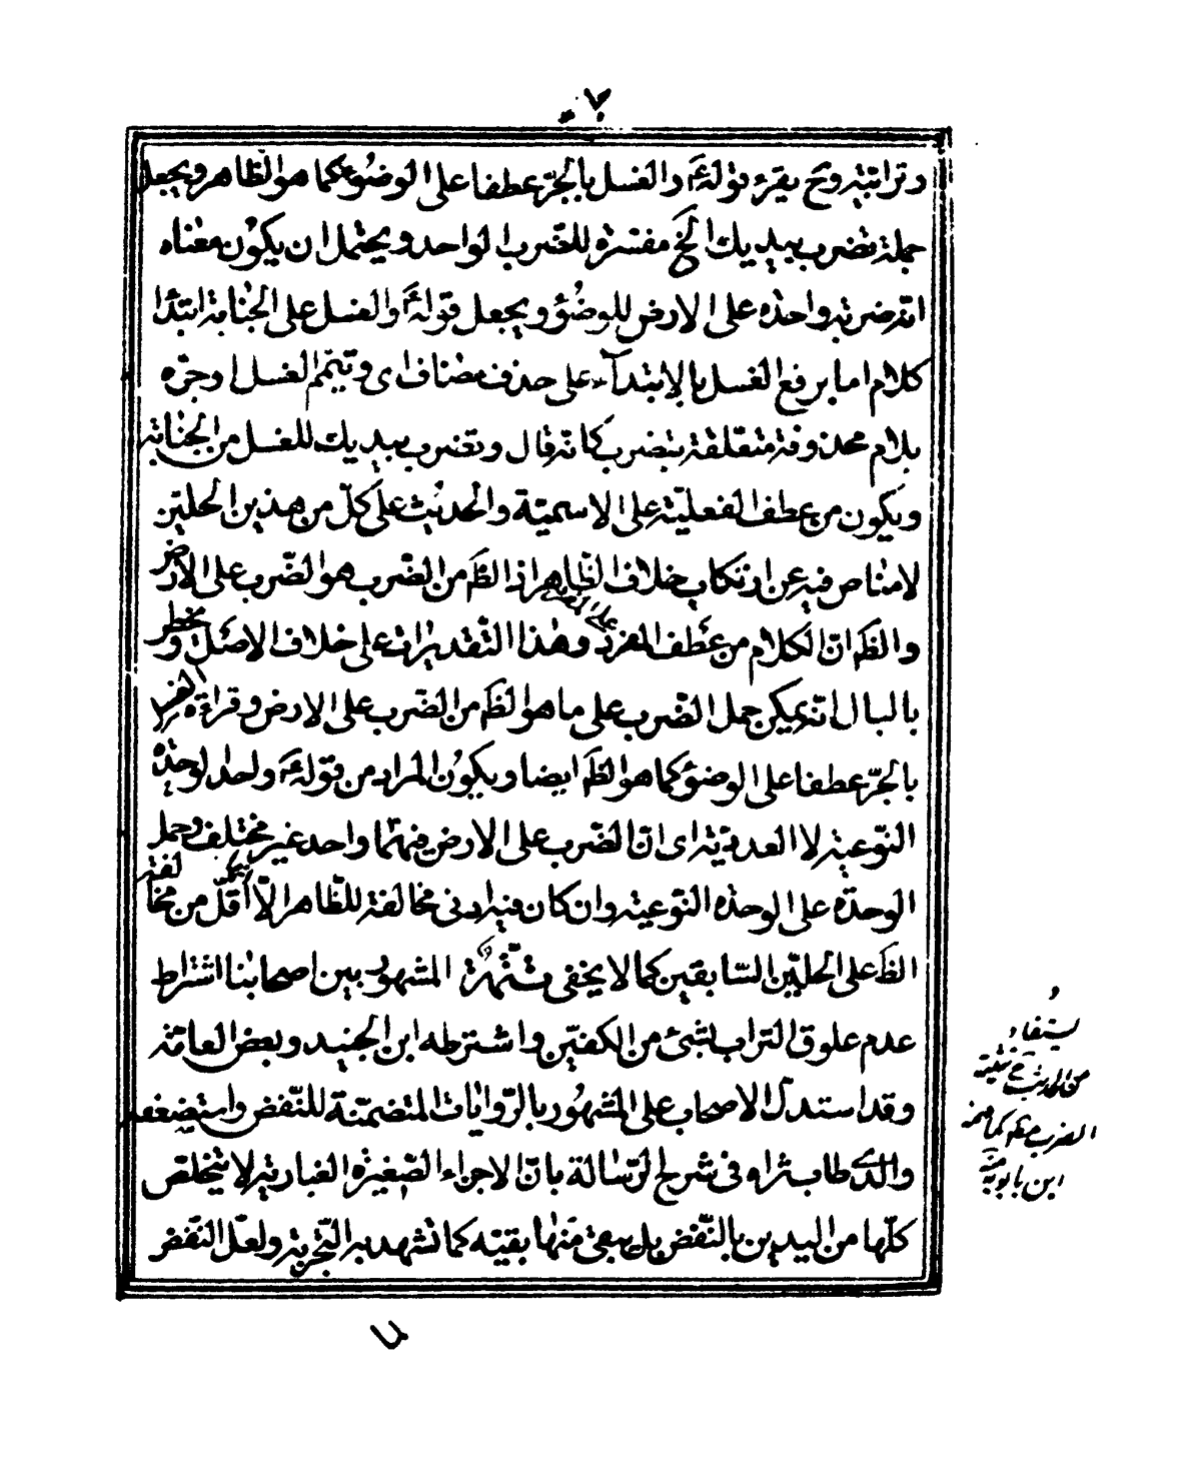 ٧
وترابيّة وح يقرء قوله ع والغسل بالجرّ عطفا على الوضوء كما هو الظاهر ويجعل
جملة تضرب بيديك الخ مفسّرة للضرب الواحد ويحتمل ان يكون معناه
انّه ضربة واحدة على الارض للوضوء ويجعل قوله ع والغسل على الجنابة ابتدا
كلام اما برفع الغسل بالابتدآء على حذف مضاف اى وتيمّم الغسل او جرّه
بلام محذوفة متعلقة بتضرب كانّه قال وتضرب بيديك للغسل من الجنابة
ويكون من عطف الفعليّة على الاسميّة والحديث على كلّ من هذين الحملين
لامناص فيه عن ارتكاب خلاف الظاهر اذ الظ من الضّرب هو الضّرب على الارض
والظ انّ الكلام من عطف المفرد على المفرد وهذا التّقديران على خلاف الاصل ويخطر
بالبال انّه يمكن حمل الضّرب على ما هو الظ من الضّرب على الارض وقراءة الغسل
بالجرّ عطفا على الوضوء كما هو الظ ايضا ويكون المراد من قوله ع واحد الوحدة
النّوعية لا العدديّة اى انّ الضّرب على الارض فيهما واحد غير مختلف وحمل
الوحدة على الوحدة النّوعية وان كان فيه ادنى مخالفة للظّاهر الّا انّه اقلّ من مخالفة
الظ على الحملين السّابقين كما لا يخفى المشهور بين اصحابنا اشتراط
عدم علوق التراب بشئ من الكفيّن واشترطه ابن الجنيد وبعض العامّة
وقد استدلّ الاصحاب على المشهور بالرّوايات المتضمّنة للنّفض واستضعفه
والدى طاب ثراه فى شرح الرّسالة بانّ الاجزاء الصّغيرة الغباريّة لا يتخلّص
كلّها من اليدين بالنّفض بل يبقى منها بقيّة كما تشهد به التّجربة ولعلّ النّفض
يستفاد
من الحديث
الضرب كما فهمه
ابن بابويه